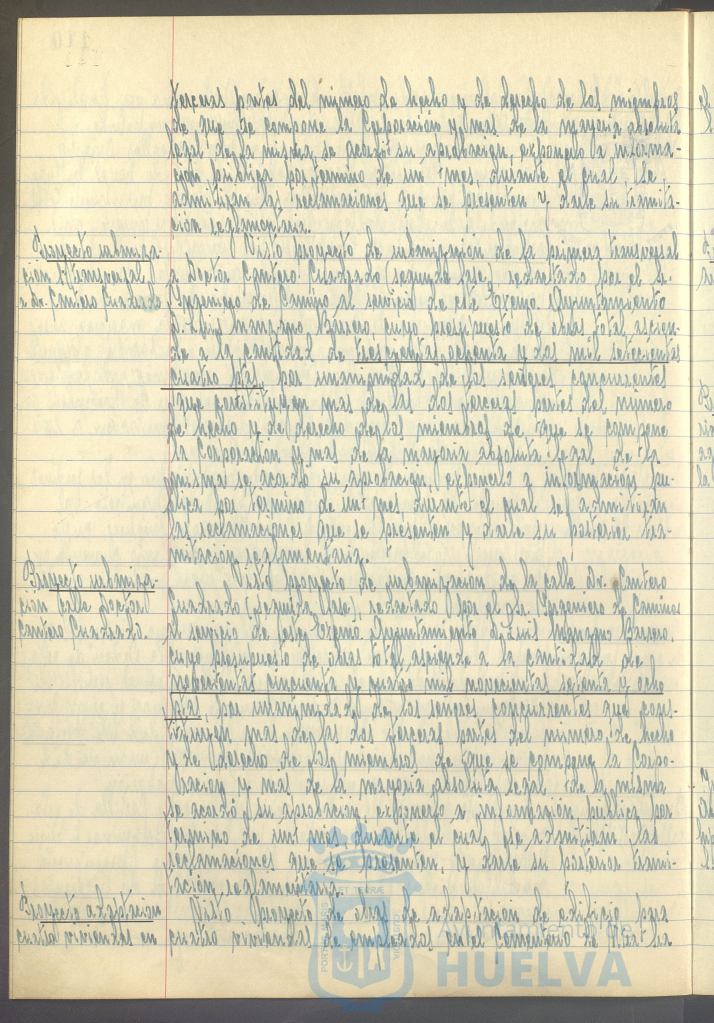 terceras partes del número de hecho y de derecho de los miembros
de que se compone la Corporación y mas de la mayoria absoluta
legal de la misma se acordó su aprobacion, exponerlo a informa-
cion pública por termino de un mes, durante el cual, se
admitiran las reclamaciones que se presenten y darle su tramita-
ción reglamentaria.
Proyecto urbaniza-
cion 1ª transversal
a Dr. Cantero Cuadrado
Visto proyecto de urbanización de la primera transversal
a Doctor Cantero Cuadrado (segunda fase), redactado por el Sr.
Ingeniero de Camino al servicio de este Excmo. Ayuntamiento
D. Luis Barrero, cuyo presupuesto de obras total ascien-
de a la cantidad de trescientas ochenta y dos mil setecientas
cuatro ptas, por unanimidad de los señores concurrentes
que constituyen mas de las dos terceras partes del número
de hecho y de derecho de los miembros de que se compone
la Corporacion y mas de la mayoria absoluta legal de la
misma se acordó su aprobacion, exponerlo a información pu-
blica por termino de un mes, durante el cual se admitiran
las reclamaciones que se presenten y darle su posterior tra-
mitación reglamentaria.
Proyecto urbaniza-
cion calle Doctor
Cantero Cuadrado.
Visto proyecto de urbanizacion de la calle Dr. Cantero
Cuadrado (segunda fase), redactado por el Sr. Ingeniero de Caminos
al servicio de este Excmo. Ayuntamiento D. Luis Barrero,
cuyo presupuesto de obras total asciende a la cantidad de
novecientas cincuenta y cuatro mil novecientas setenta y ocho
ptas, por unanimidad de los señores concurrentes que cons-
tituyen mas de las dos terceras partes del número de hecho
y de derecho de los miembros de que se compone la Corpo-
racion y mas de la mayoria absoluta legal de la misma
se acordó su aprobacion, exponerlo a información pública por
termino de un mes durante el cual se admitirán las
reclamaciones que se presenten, y darle su posterior trami-
tación reglamentaria.
Proyecto adaptacion
cuatro viviendas en
Visto proyecto de obras de adaptacion de edificio para
cuatro viviendas de empleados en el Cementerio de
Ayuntamiento de
HUELVA